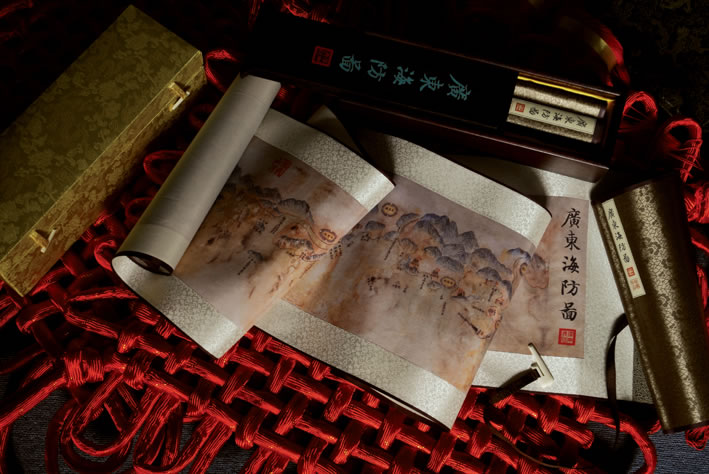 廣東海防啚
廣東海防啚
廣東海防啚
廣東海防啚